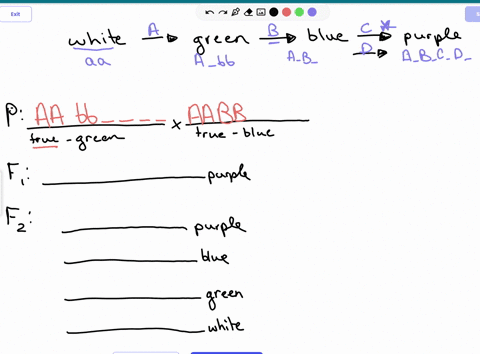 Exit
white A green B blue C * purple
D
aa A_bb A_B_ A_B_C_D_
P: AA bb_ _ _ _ x AABB
true-green true-blue
F1: purple
F2: purple
blue
green
white